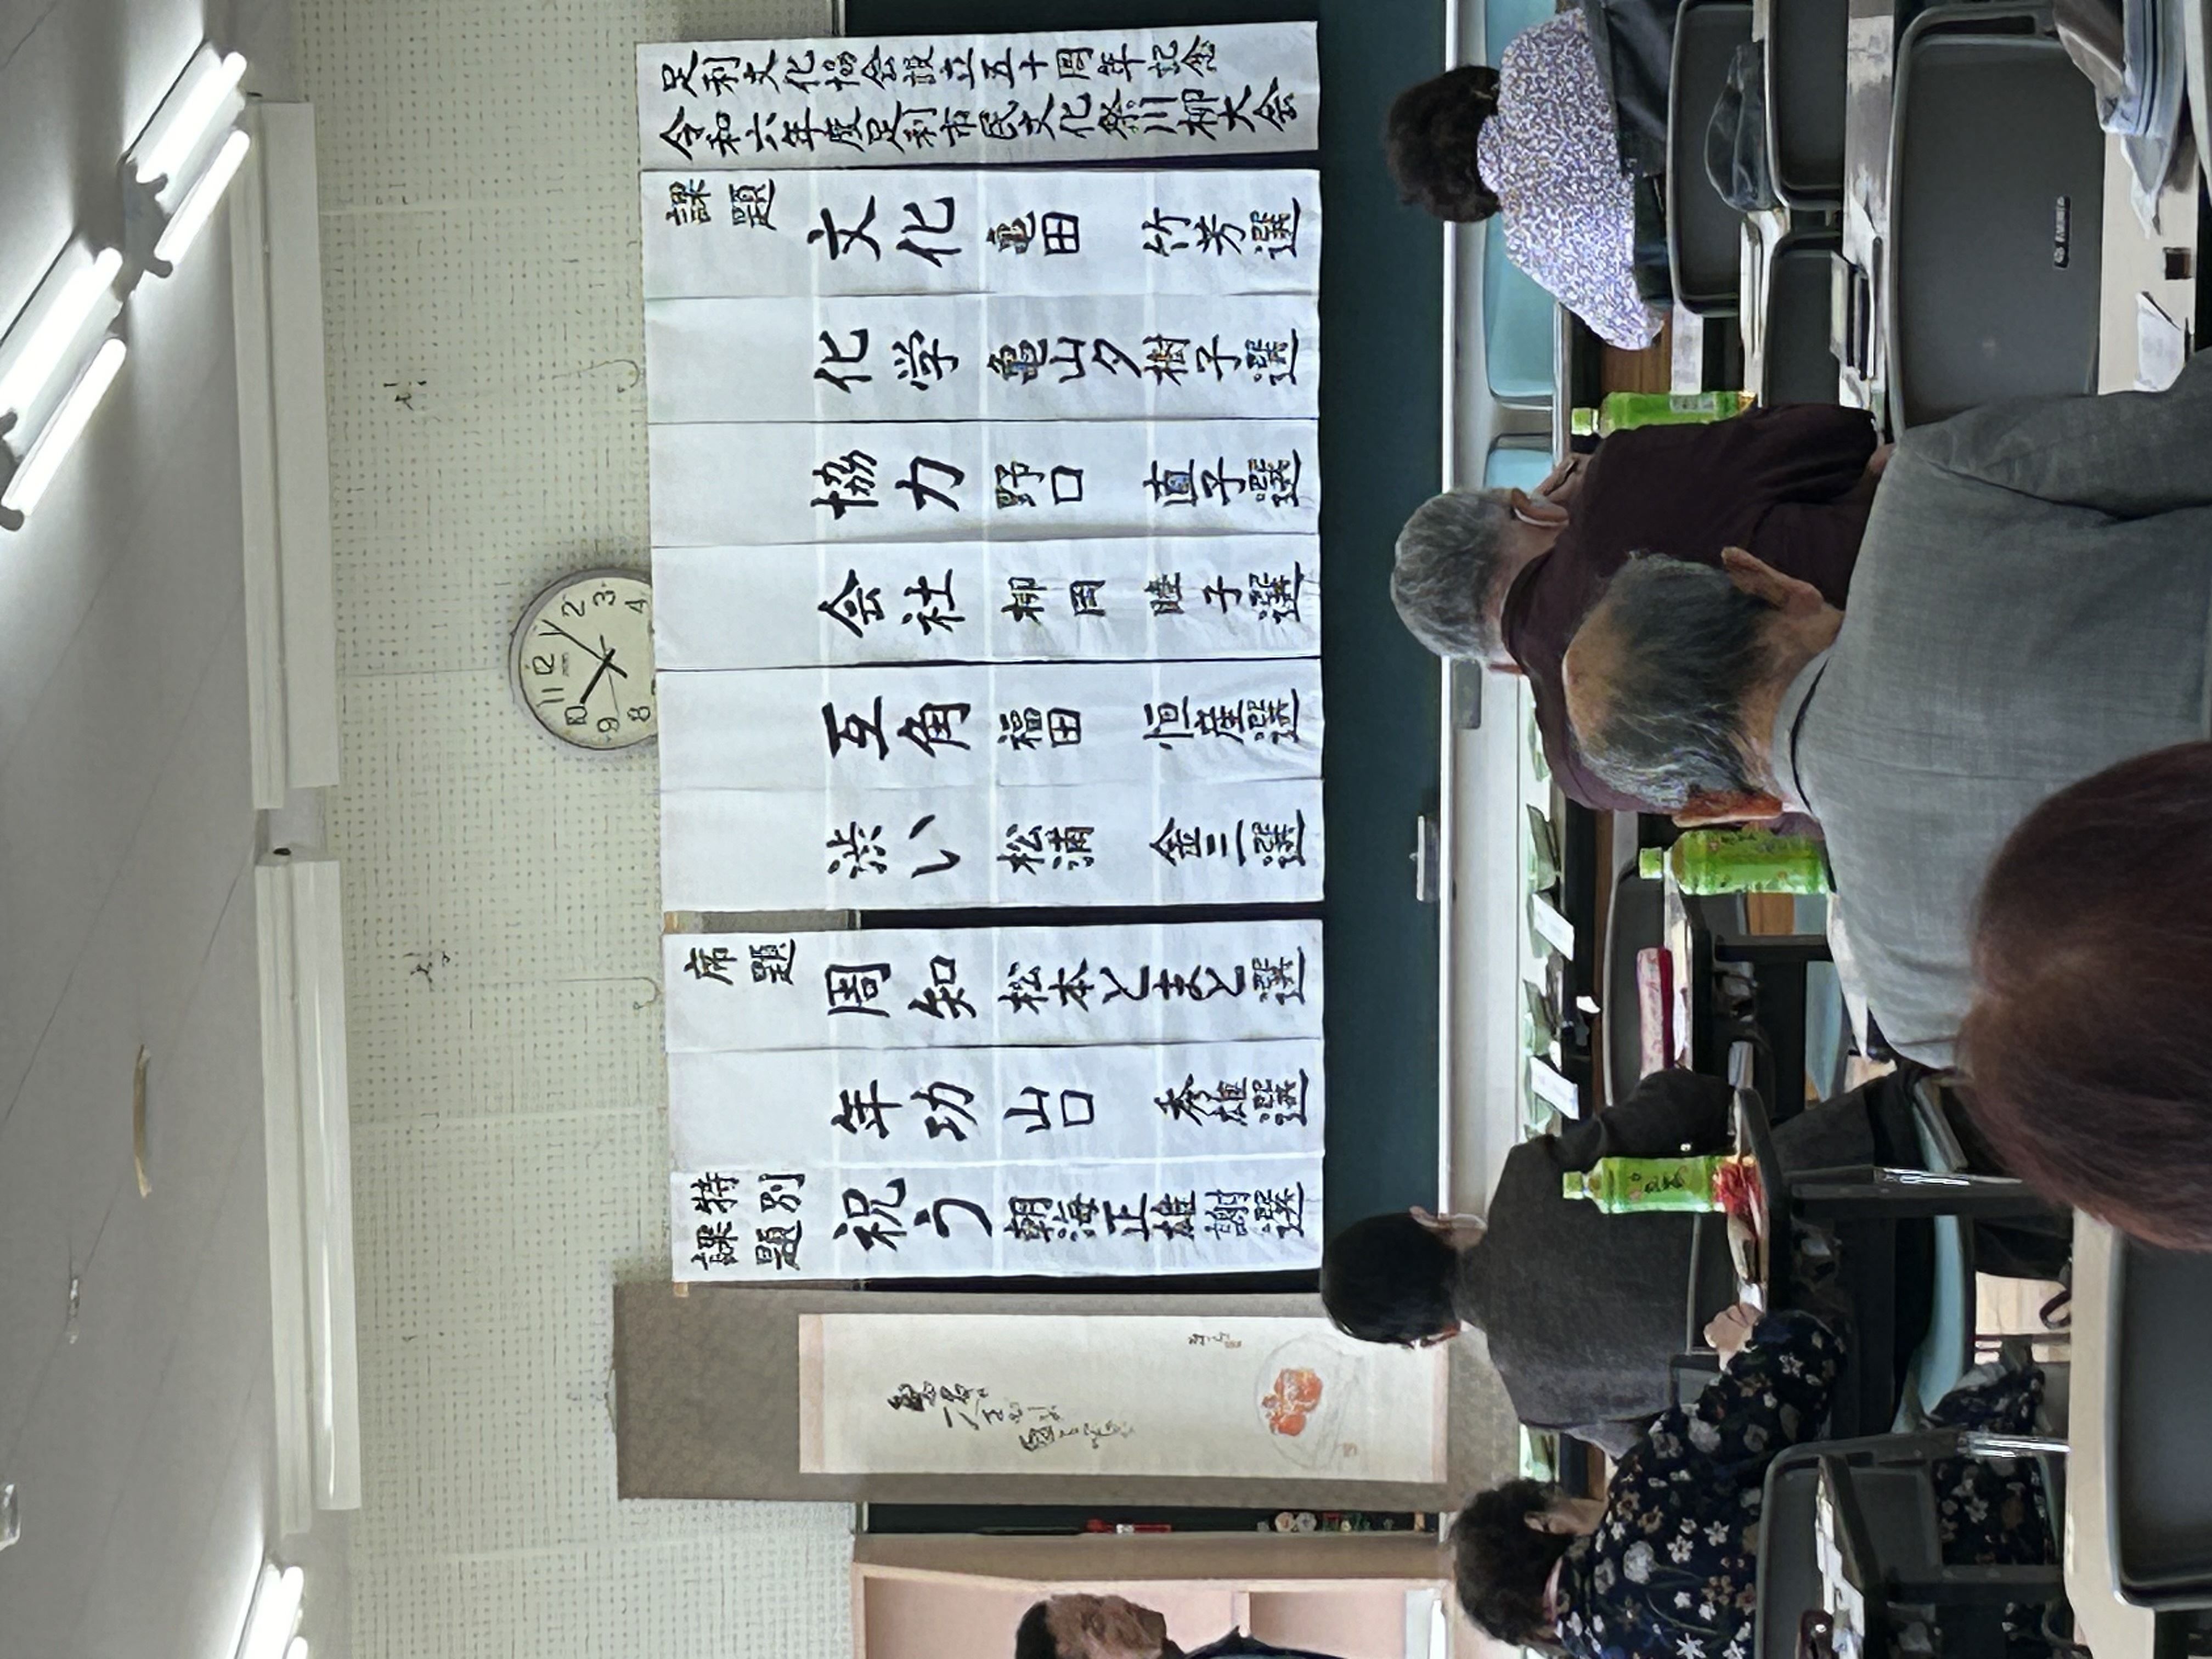 足利文化協会設立五十周年記念
令和六年度足利市民文化祭川柳大会
課題
文化 亀田 竹芳選
化学 亀山夕樹子選
協力 野口 直子選
会社 柳岡 睦子選
互角 福田 恒産選
渋い 松浦 金三選
席題
周知 松本とまと選
年功 山口 秀雄選
特別
課題
祝う 朝海正雄謝選
10 11 12 2 3 4 8 9